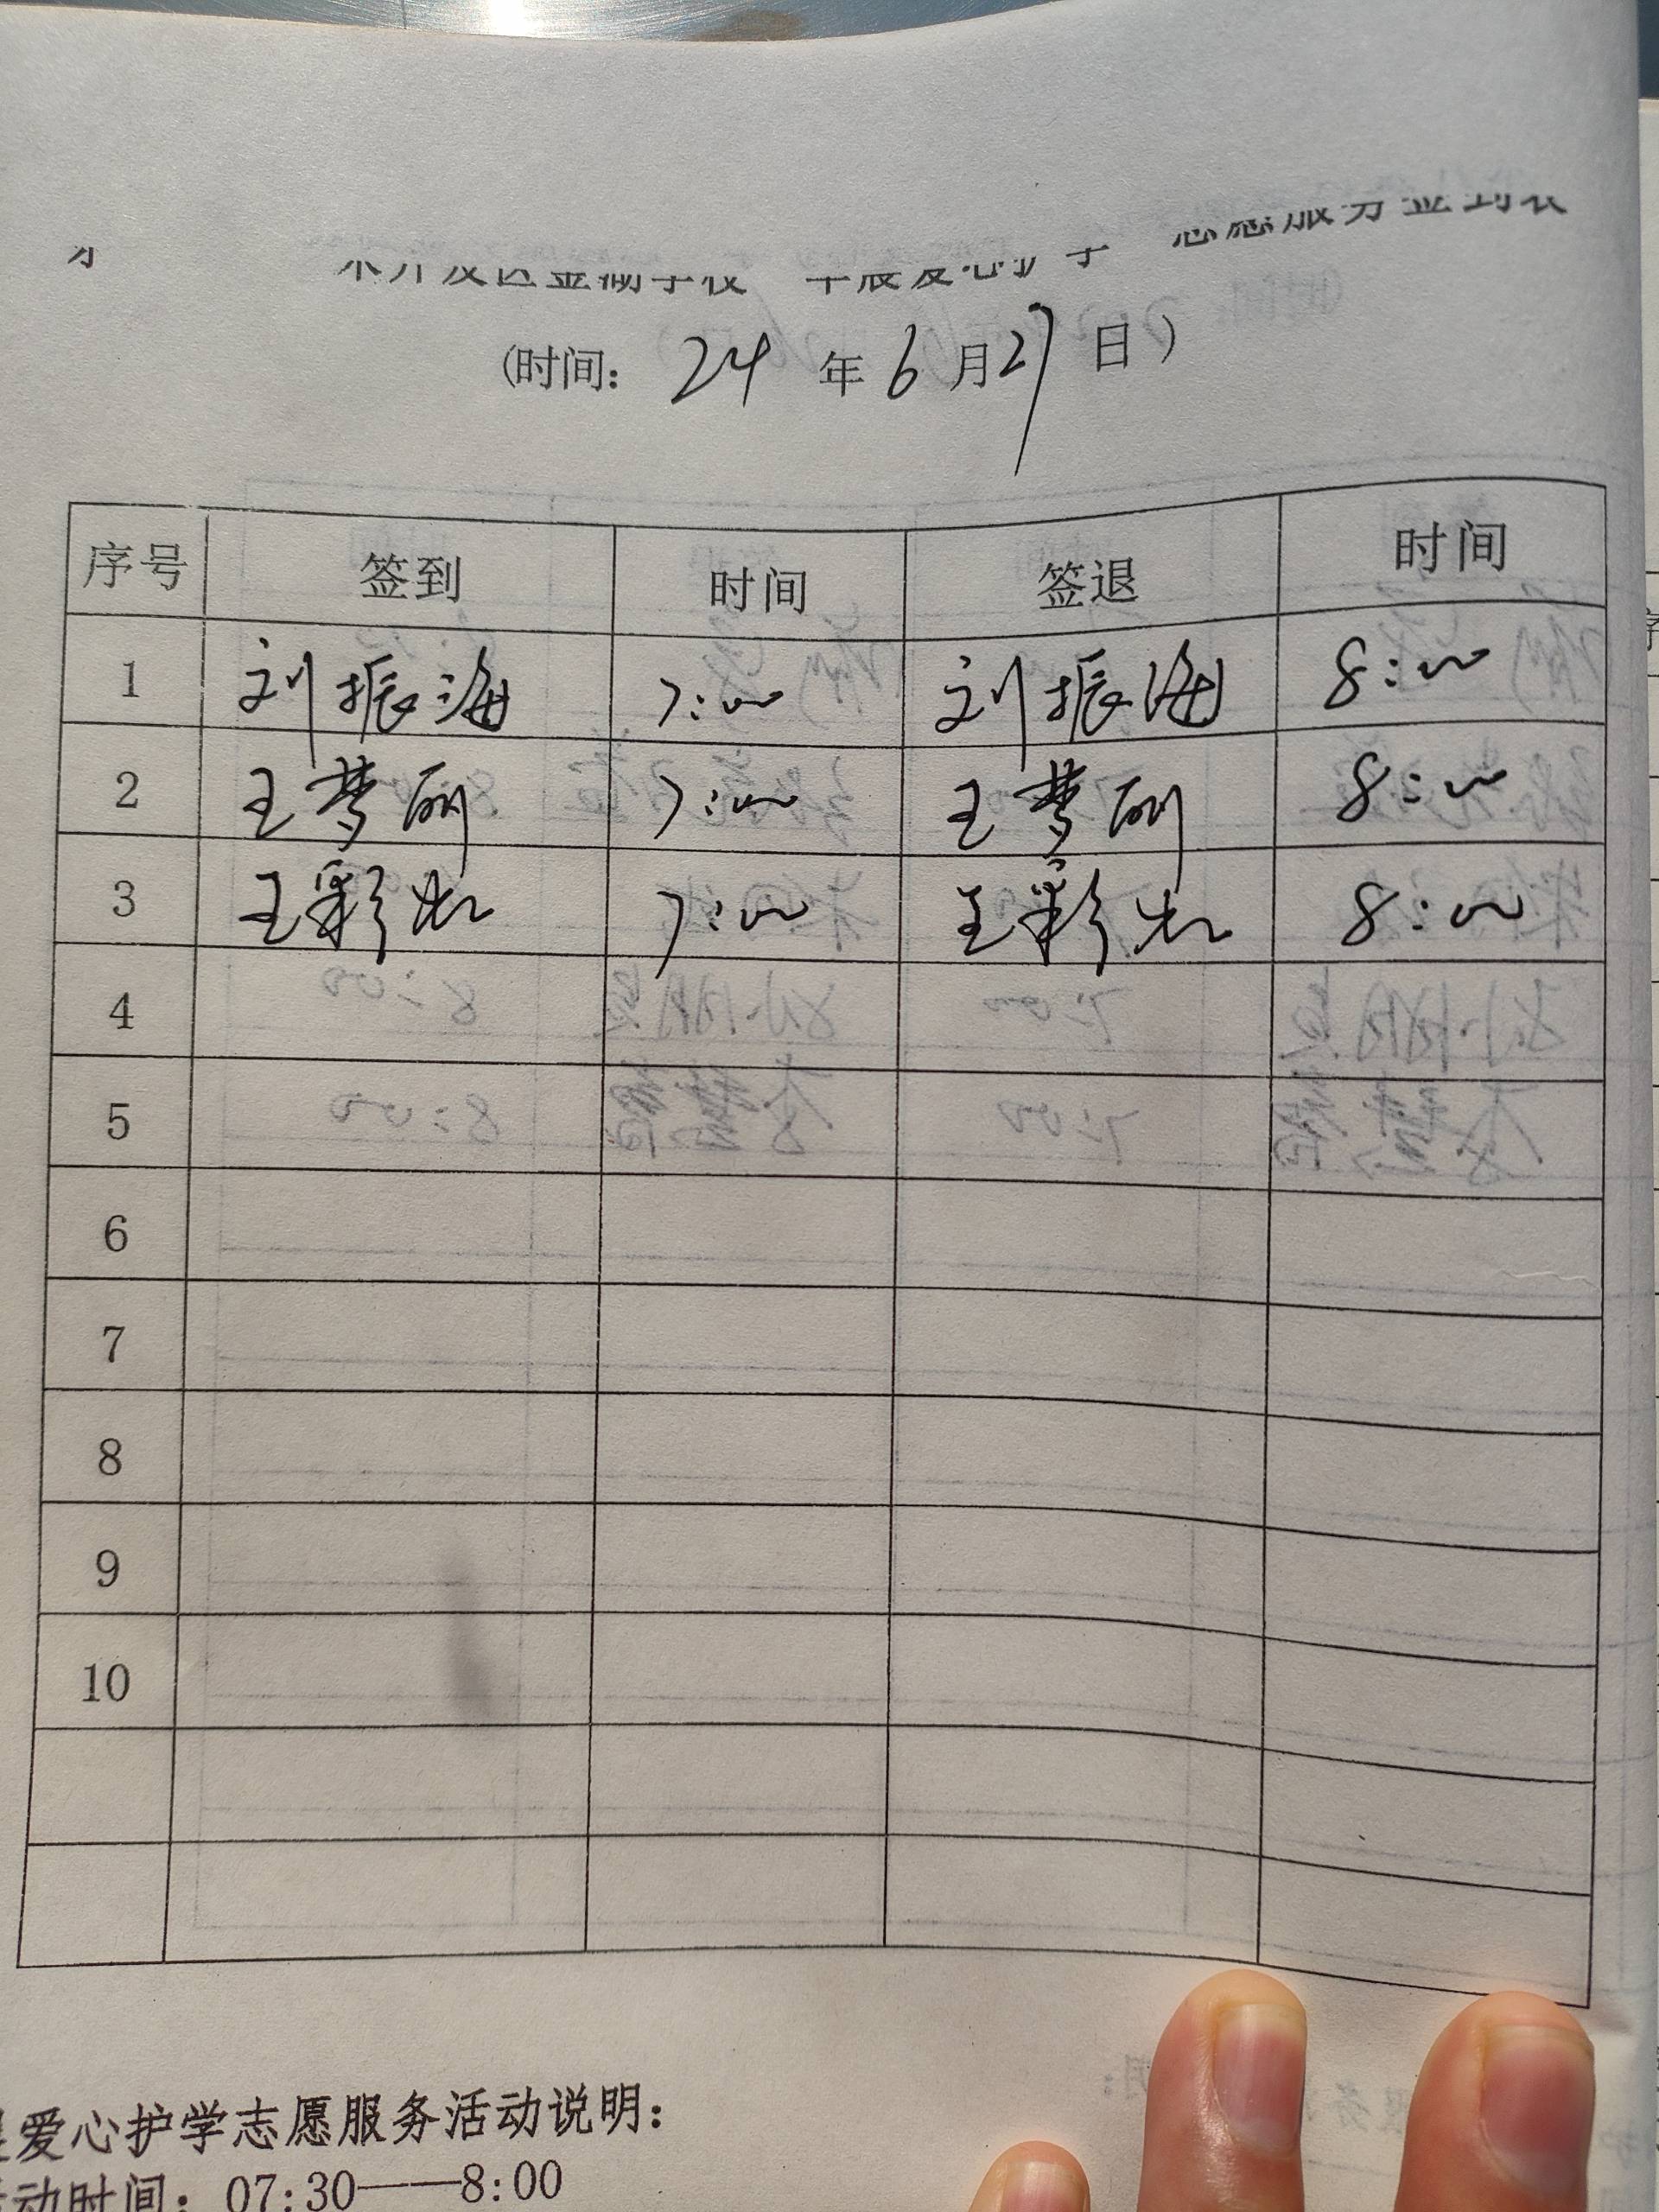 (时间: 24 年 6 月 27 日)
序号 签到 时间 签退 时间
1 刘振海 7:00 刘振海 8:00
2 王梦丽 7:00 王梦丽 8:00
3 王彩虹 7:00 王彩虹 8:00
4
5
6
7
8
9
10
爱心护学志愿服务活动说明:
动时间: 07:30——8:00